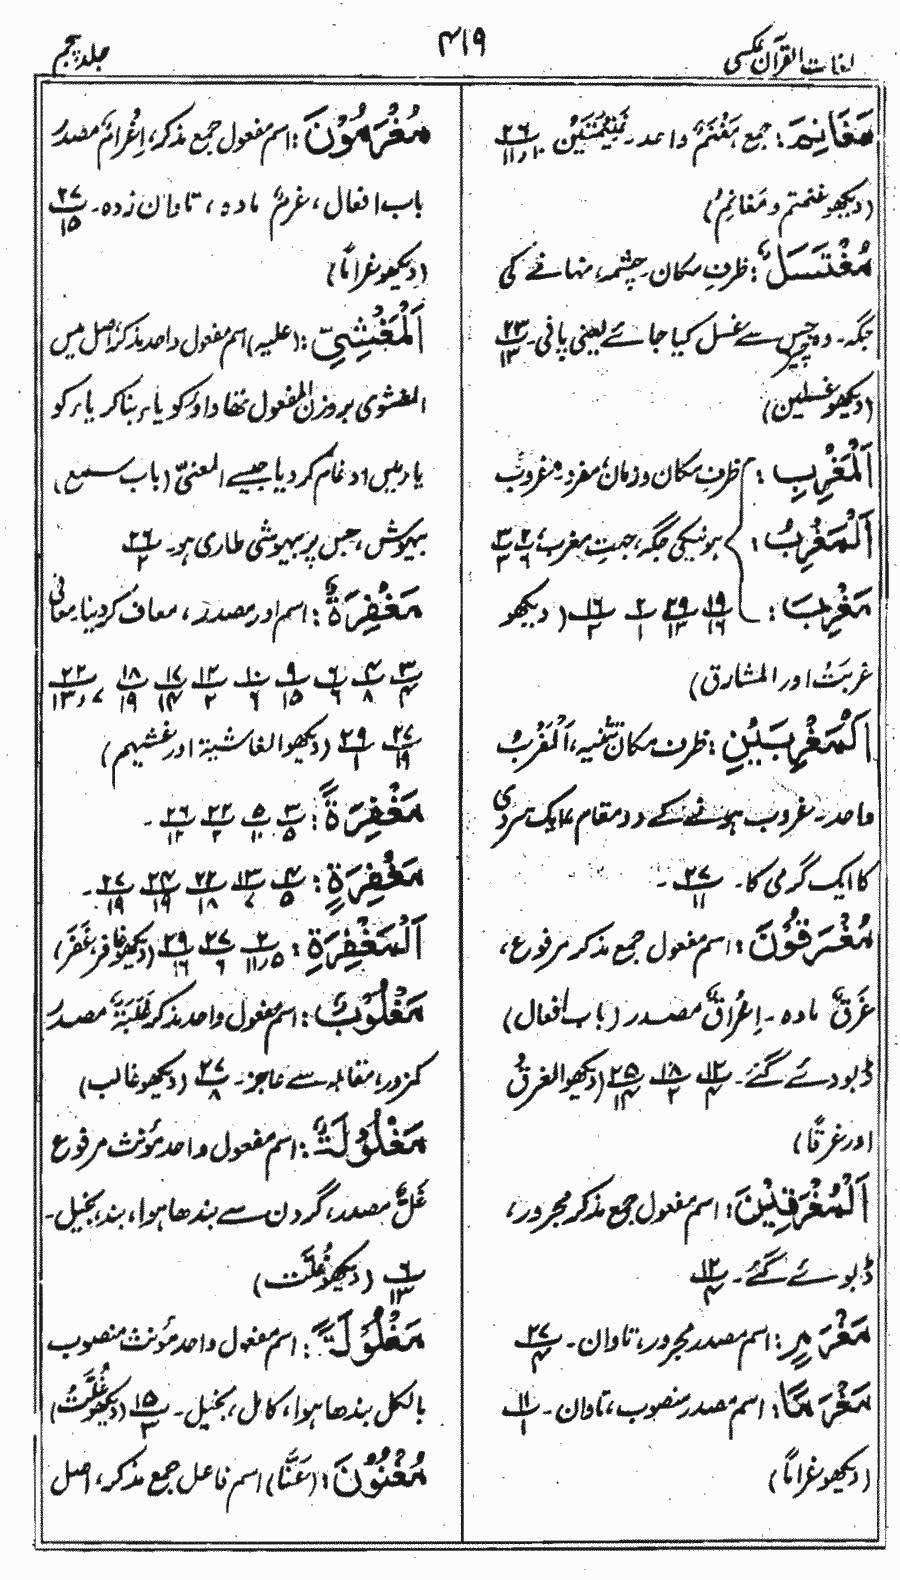 لغات القرآن عکسی
۴۱۹
جلد پنجم
مَغَانِمَ: جمع مَغْنَمٌ واحد۔ غنیمتیں ۲۶/۱۰ و ۱۱
(دیکھو غنمتم و مَغَانِمُ)
مُغْتَسَلٌ: ظرفِ مکان۔ چشمہ، نہانے کی
جگہ۔ وہ چیز جس سے غسل کیا جائے یعنی پانی۔ ۲۳/۱۳
(دیکھو غسلین)
اَلْمَغْرِبِ: ظرفِ مکان و زمان، مفرد۔ غروب
اَلْمَغْرِبُ: ہونیکی جگہ، جہتِ مغرب، ۲/۹ ۳/۳
مَغْرِبَ: ۱۹/۱۶ ۲۹/۱۳ ۲/۱ ۱۶/۲ (دیکھو
غربَتْ اور المشارق)
اَلْمَغْرِبَيْنِ: ظرف مکان تثنیہ، اَلْمَغْرِبُ
واحد۔ غروب ہونے کے دو مقام ایک سردی
کا ایک گرمی کا۔ ۲۷/۱۱
مُغْرَقُوْنَ: اسم مفعول جمع مذکر مرفوع،
غَرَقٌ مادہ۔ اِغْرَاقٌ مصدر (باب افعال)
ڈبو دئے گئے۔ ۱۲/۴ ۱۸/۲ ۲۵/۱۴ (دیکھو الغرقُ
اور غرقًا)
اَلْمُغْرَقِيْنَ: اسم مفعول جمع مذکر مجرور،
ڈبوئے گئے۔ ۱۲/۴
مَغْرَمٍ: اسم مصدر مجرور، تاوان۔ ۲۷/۴
مَغْرَمًا: اسم مصدر منصوب، تاوان۔ ۱۱/۱
(دیکھو غرامًا)
مُغْرَمُوْنَ: اسم مفعول جمع مذکر، اِغْرَامٌ مصدر
باب افعال، غرمٌ مادہ، تاوان زدہ۔ ۲۷/۱۵
(دیکھو غرامًا)
اَلْمَغْشِيِّ: (علیہ) اسم مفعول واحد مذکر اصل میں
المغشوی بروزن المفعول تھا واؤ کو یاء بنا کر یاء کو
یاء میں ادغام کر دیا جیسے المعنیّ (باب سمع)
بیہوش، جس پر بیہوشی طاری ہو۔ ۲۶/۲
مَغْفِرَةٌ: اسم اور مصدر، معاف کر دینا۔ معافی
۳/۴ ۴/۸ ۶/۶ ۹/۱۵ ۱۰/۶ ۱۲/۲ ۱۷/۱۴ ۱۸/۱۹ ۲۲/۷ و ۱۳
۲۷/۱۹ ۲۹/۱ (دیکھو الغاشیۃ اور غشیہم)
مَغْفِرَةً: ۳/۵ ۵/۱۰ ۲۲/۲ ۲۶/۱۲ ۔
مَغْفِرَةٍ: ۴/۵ ۱۳/۷ ۲۲/۱۸ ۲۴/۱۹ ۲۷/۱۹ ۔
اَلْمَغْفِرَةِ: ۲/۵ و ۱۱ ۲۷/۶ ۲۹/۱۶ (دیکھو غافر، غَفَرَ)
مَغْلُوْبٌ: اسم مفعول واحد مذکر غَلَبَةٌ مصدر
کمزور، مقابلہ سے عاجز۔ ۲۷/۸ (دیکھو غالب)
مَغْلُوْلَةٌ: اسم مفعول واحد مؤنث مرفوع
غَلٌّ مصدر، گردن سے بندھا ہوا، بند، بخیل۔
۶/۱۳ (دیکھو غُلَّت)
مَغْلُوْلَةً: اسم مفعول واحد مؤنث منصوب
بالکل بندھا ہوا، کامل، بخیل۔ ۱۵/۳ (دیکھو غُلَّتْ)
مُغْنُوْنَ: (عَنَّا) اسم فاعل جمع مذکر، اصل